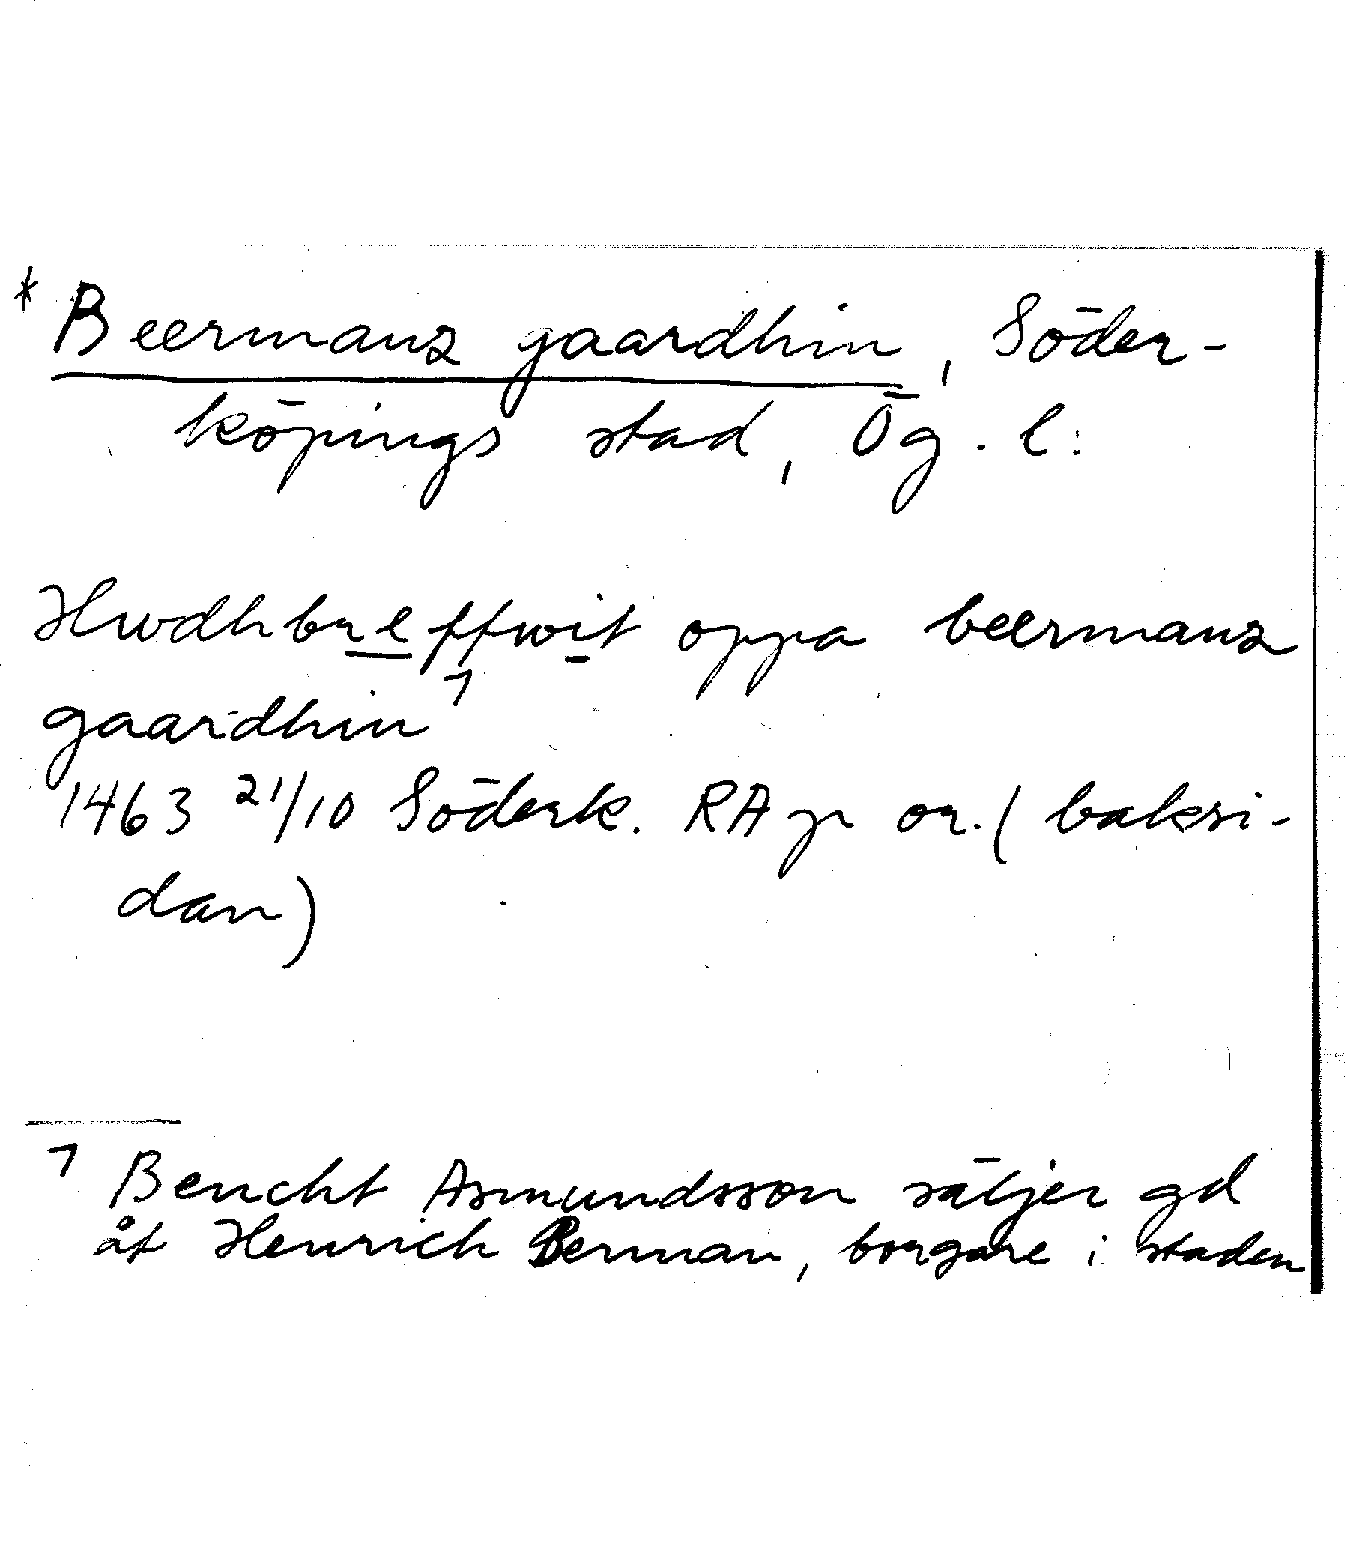 * Beermanz gaardhin, Söder-
köpings stad, Ög. l:
Hwdhbreffwit oppa beermanz
gaardhin ¹
1463 21/10 Söderk. RA p or. (baksi-
dan)
¹ Bencht Asmundsson säljer gd
åt Henrich Berman, borgare i staden